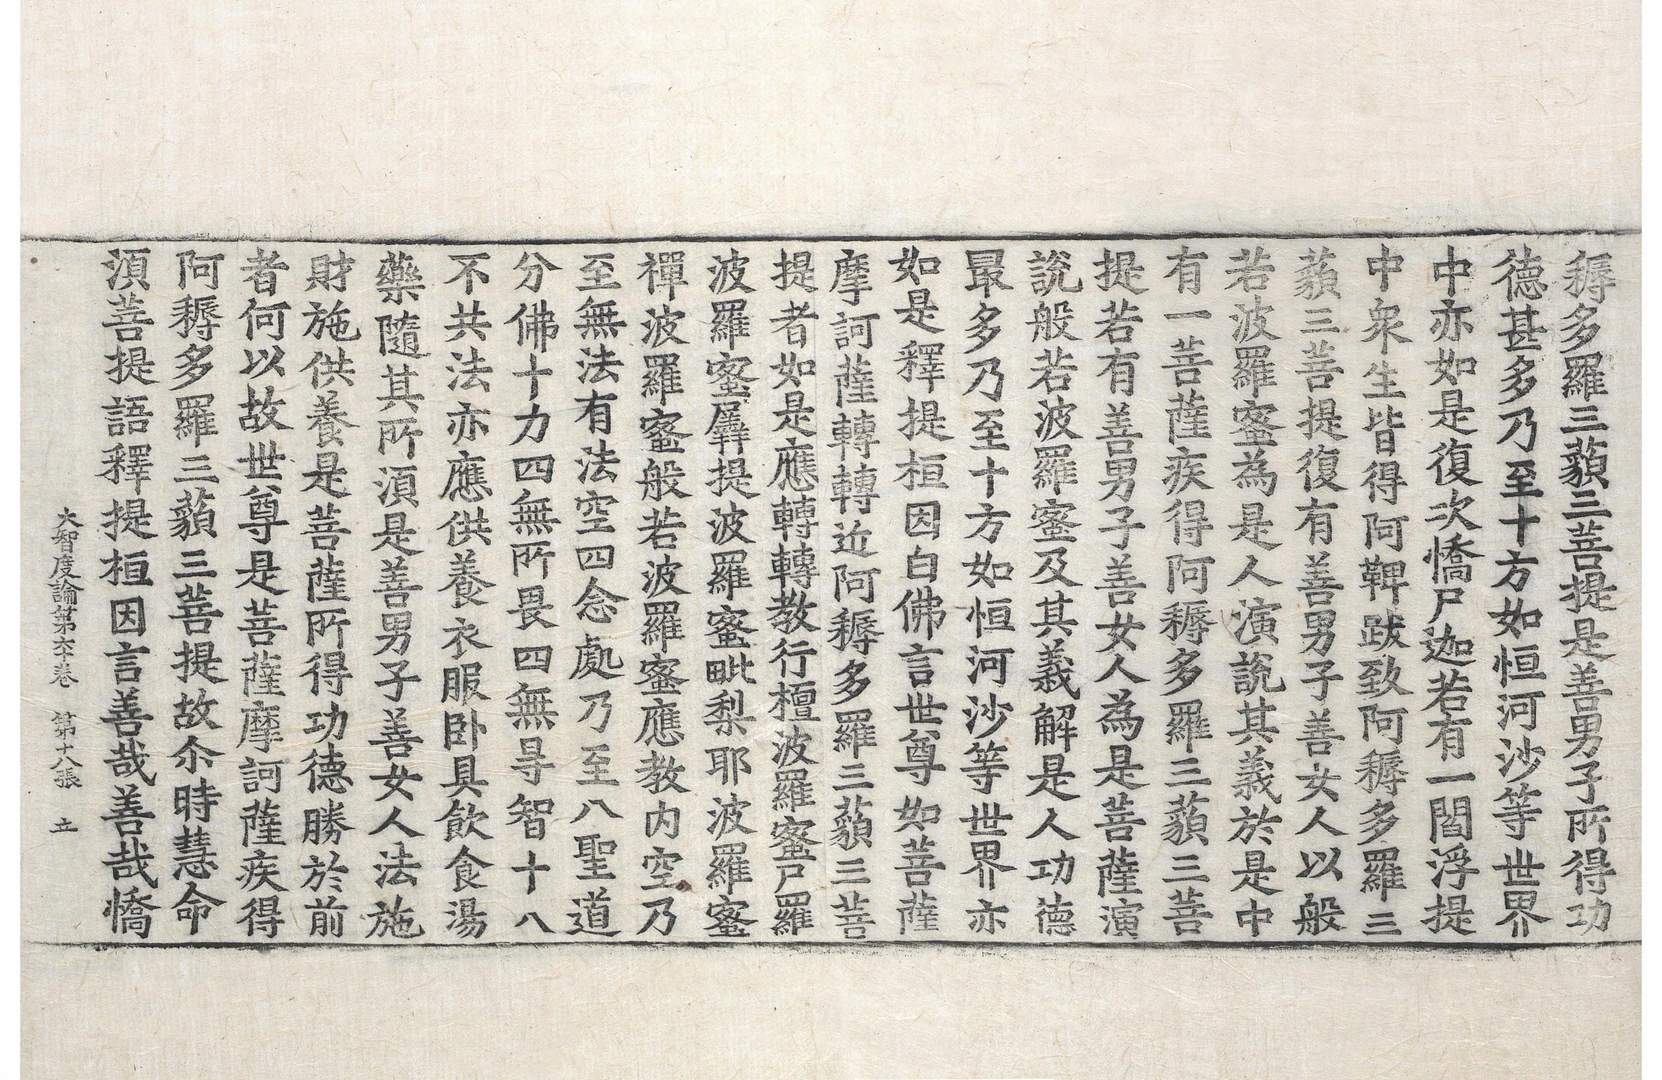 耨多羅三藐三菩提是善男子所得功
德甚多乃至十方如恒河沙等世界
中亦如是復次憍尸迦若有一閻浮提
中衆生皆得阿鞞跋致阿耨多羅三
藐三菩提復有善男子善女人以般
若波羅蜜為是人演說其義於是中
有一菩薩疾得阿耨多羅三藐三菩
提若有善男子善女人為是菩薩演
說般若波羅蜜及其義解是人功德
最多乃至十方如恒河沙等世界亦
如是釋提桓因白佛言世尊如菩薩
摩訶薩轉轉近阿耨多羅三藐三菩
提者如是應轉轉教行檀波羅蜜尸羅
波羅蜜羼提波羅蜜毗梨耶波羅蜜
禪波羅蜜般若波羅蜜應教內空乃
至無法有法空四念處乃至八聖道
分佛十力四無所畏四無导智十八
不共法亦應供養衣服卧具飲食湯
藥隨其所須是善男子善女人法施
財施供養是菩薩所得功德勝於前
者何以故世尊是菩薩摩訶薩疾得
阿耨多羅三藐三菩提故尒時慧命
須菩提語釋提桓因言善哉善哉憍
大智度論第六十卷 第十八張 立